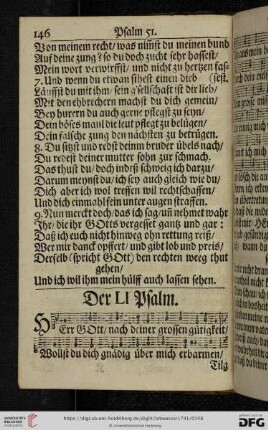 146 Psalm 51.
Von meinem recht/ was nimst du meinen bund
Auf deine zung? so du doch zucht sehr hassest/
Mein wort verwirffst/ und nicht zu hertzen fas-
7. Und wenn du etwan sihest einen dieb (sest.
Läufst du mit ihm/ sein gsellschaft ist dir lieb/
Mit den ehbrechern machst du dich gemein/
Bey hurern du auch gerne pflegst zu seyn/
Dein böses maul die leut pflegt zu belügen/
Dein falsche zung den nächsten zu betrügen.
8. Du sitzst und redst deinm bruder übels nach/
Du redest deiner mutter sohn zur schmach.
Das thust du/ doch indeß schweig ich darzu/
Darum meynst du/ ich sey auch gleich wie du/
Dich aber ich wol treffen wil rechtschaffen/
Und dich einmahl fein unter augen straffen.
9. Nun merckt doch/ das ich sag/ uñ nehmet wahr
Ihr/ die ihr GOtts vergesset gantz und gar:
Daß ich euch nicht hinweg ohn rettung reiß/
Wer mir danck opffert/ und gibt lob und preis/
Derselb (spricht GOtt) den rechten weeg thut
gehen/
Und ich wil ihm mein hülff auch lassen sehen.
Der LI Psalm.
HErr GOtt/ nach deiner grossen gütigkeit/
Wollst du dich gnädig über mich erbarmen/
Tilg
https://digi.ub.uni-heidelberg.de/diglit/lobwasser1791/0168
© Universitätsbibliothek Heidelberg
gefördert durch die
DFG